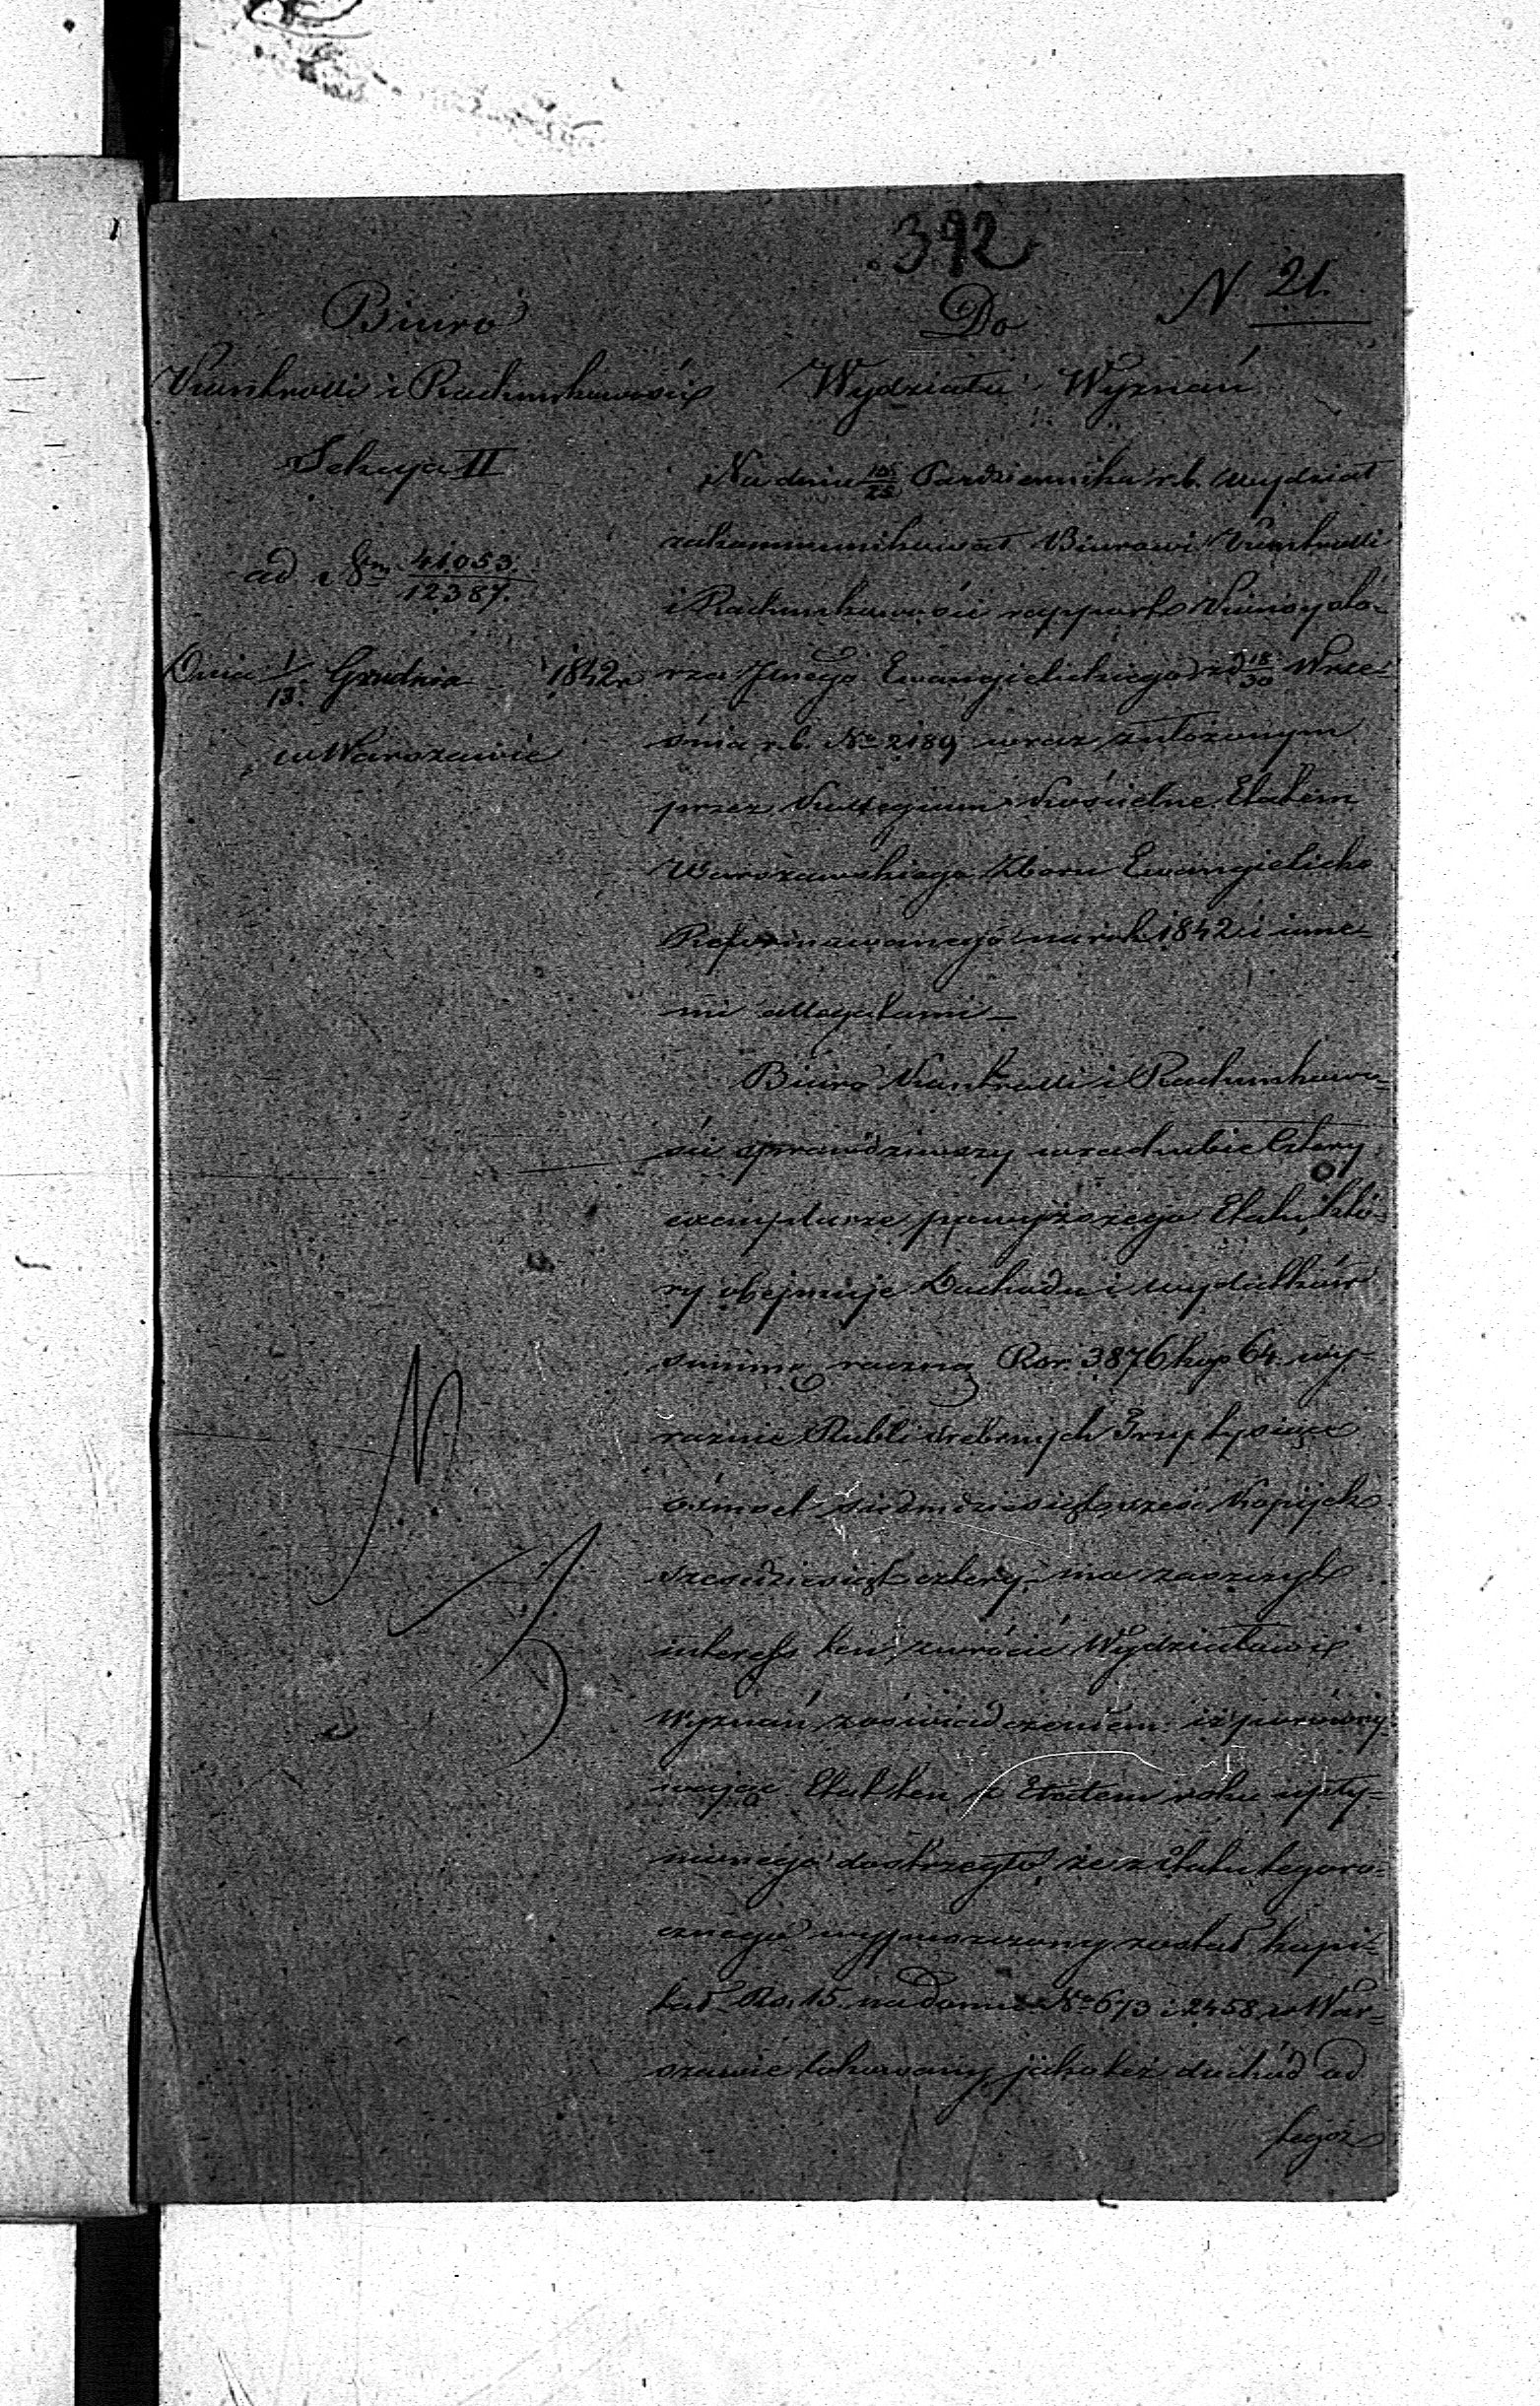 392
N 21.
Biuro
Kontrolli i Rachunkowości
Sekcya II
ad Nrm 41053/12387.
Dnia 1/13. Grudnia 1842 r
w Warszawie
Do
Wydziału Wyznań
Na dniu Pazdziernika r. b. Wydział
zakommunikował Biurowi Kontrolli
i Rachunkowości rapport Konsysto-
rza Jlnego Ewangielickiego z d 18/30 Wrze-
śnia r. b. No 2189 wraz złożonym
przez Kollegium Kościelne Etatem
Warszawskiego Zboru Ewangielicko
Reformowanego na rok 1842 i inne-
mi allegatami –
Biuro Kontrolli i Rachunkowo-
ści sprawdziwszy w rachubie cztery
exemplarze powyższego Etatu, któ-
ry obejmuje Dochodu i wydatków
summę roczną Rsr. 3876 kop 64. wy-
raznie Rubli srebrnych Trzy tysiące
ośmset siedmdziesiąt sześć Kopijek
sześćdziesiąt cztery, ma zaszczyt
interess ten zwrócić Wydziałowi
Wyznań z oświadczeniem: iż porówny-
wając Etat ten z Etatem roku upły-
nionego dostrzegło, że z Etatu tegoro-
cznego wypuszczony został kapi-
tał Rs. 15. na domu No 673 i 2458 w War-
szawie lokowany, jako też dochód od
tegoż